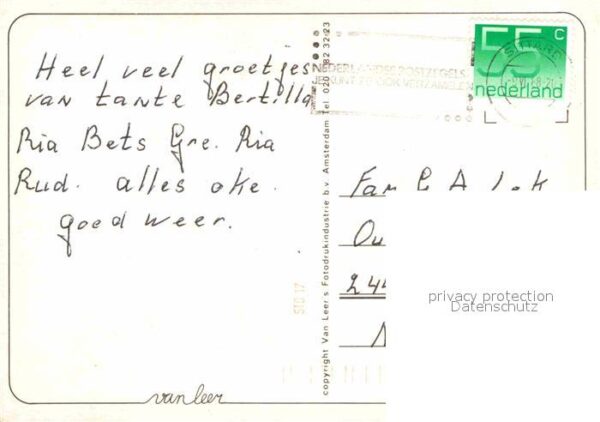 Heel veel groetjes
van tante Bertilla
Ria Bets Gre. Ria
Rud. alles oke.
goed weer.
copyright Van Leer's Fotodrukindustrie b.v. Amsterdam Tel. 020 - 82 32 23
NEDERLANDSE POSTZEGELS
JE KUNT ZE OOK VERZAMELEN
55 c
nederland
SITTARD
Fam
Ou
244
STD 17
privacy protection
Datenschutz
van leer